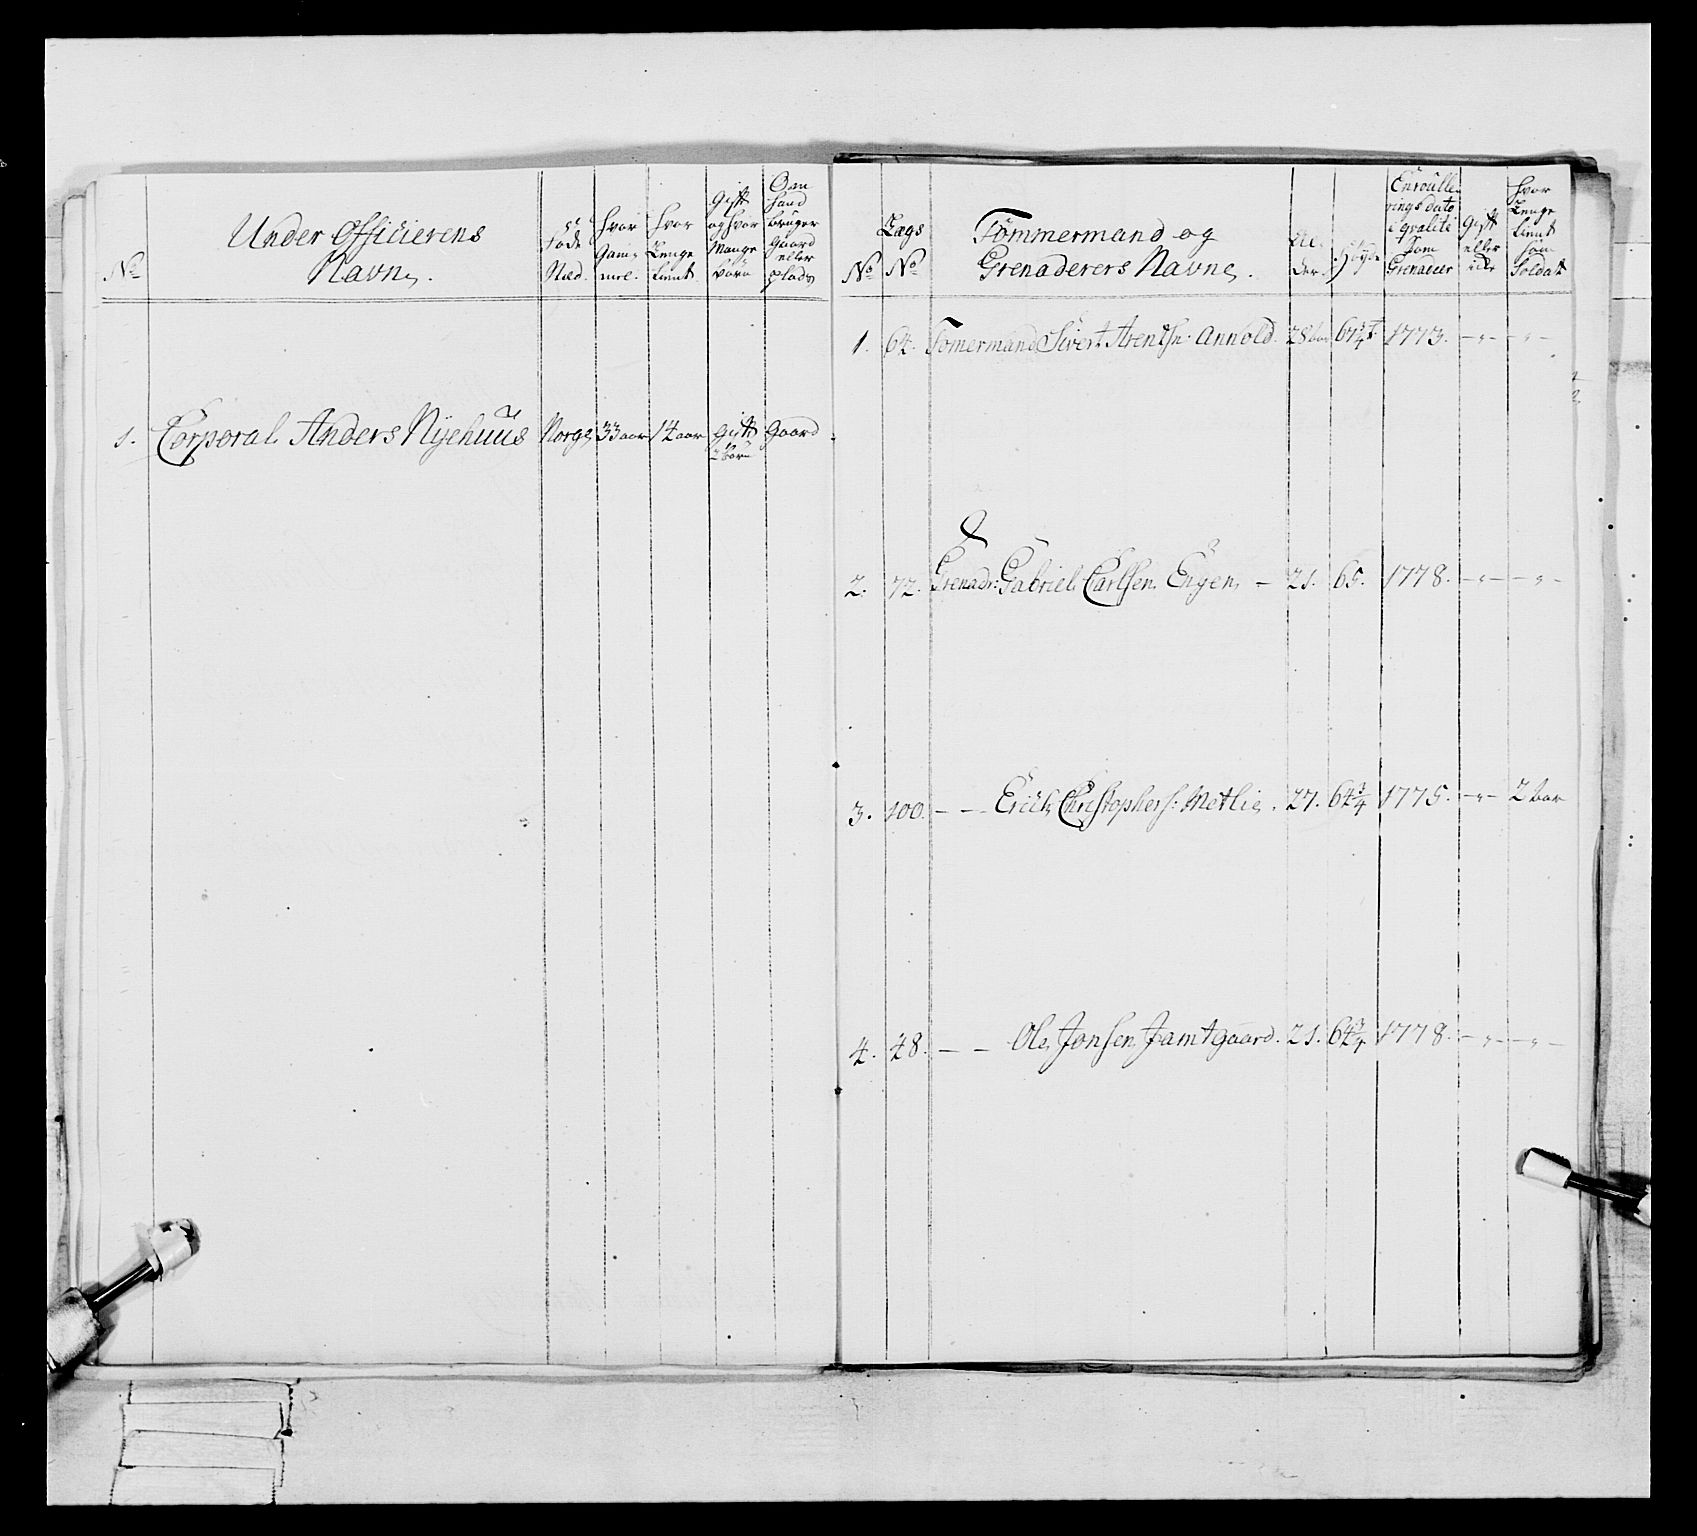 No
Under Officierens
Navne.
Föde
Sted.
hvor
Gam-
mel.
hvor
Lenge
tient
Gift
og hvor
Mange
börn
Om
hand
bruger
Gaard
eller
plads
1. Corporal Anders Nÿehuus Norge 33 aar 14 aar Gift Gaard
2 börn
No
Lægs
No
Tömmermand og
Grenaderers Navne.
Al-
der.
Höyde
Enroulle-
rings dato
i qvalite
Som
Grenadeer
Gift
eller
icke
hvor
Lenge
tient
som
Soldat
1. 64. Tömermand Sivert Arentsn: Annold. 28 aar 67 1/4 T 1773. - " - - " -
2. 72. Grenadr: Gabriel Carlsen Engen - 21. 65. 1778. - " - - " -
3. 100. - - Erich Christophers: Metlie. 27. 64 3/4 1775. - " - 2 aar
4. 48. - - Ole Jonsen Jamtgaard. 21. 64 3/4 1778. - " - - " -